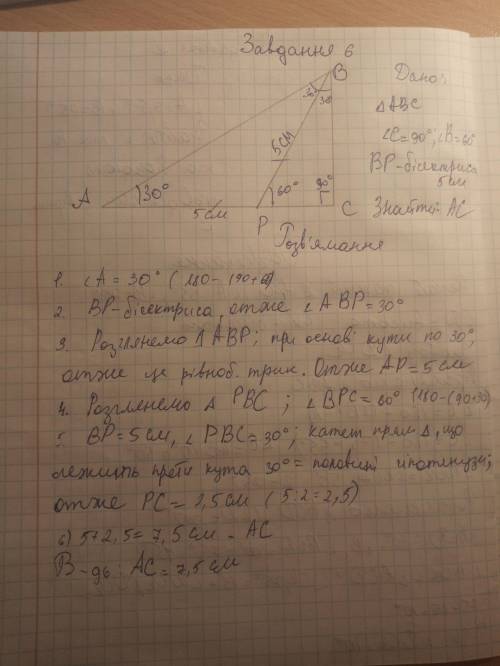 Завдання 6
B
Дано:
30
30
△ABC
∠C=90°; ∠B=60°
5см
BP-бісектриса
5см
A
30°
60°
90°
5см
P
C
Знайти: AC
Розв'язання
1. ∠A = 30° (180-(90+60)
2. BP-бісектриса, отже ∠ABP=30°
3. Розглянемо △ABP; при основі кути по 30°,
отже це рівноб. трик. Отже AP=5см
4. Розглянемо △ PBC ; ∠BPC=60° (180-(90+30)
5. BP=5см, ∠PBC=30°; катет прям △, що
лежить проти кута 30°= половині гіпотенузи;
отже PC= 2,5см (5:2=2,5)
6) 5+2,5= 7,5см - AC
В-дь: AC=7,5см